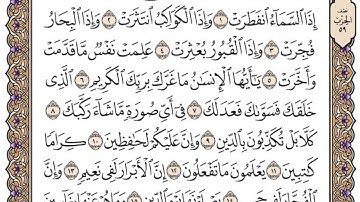 إِذَا ٱلسَّمَآءُ ٱنفَطَرَتْ ١ وَإِذَا ٱلْكَوَاكِبُ ٱنتَثَرَتْ ٢ وَإِذَا ٱلْبِحَارُ
فُجِّرَتْ ٣ وَإِذَا ٱلْقُبُورُ بُعْثِرَتْ ٤ عَلِمَتْ نَفْسٌ مَّا قَدَّمَتْ
وَأَخَّرَتْ ٥ يَٰٓأَيُّهَا ٱلْإِنسَٰنُ مَا غَرَّكَ بِرَبِّكَ ٱلْكَرِيمِ ٦ ٱلَّذِى
خَلَقَكَ فَسَوَّىٰكَ فَعَدَلَكَ ٧ فِىٓ أَىِّ صُورَةٍ مَّا شَآءَ رَكَّبَكَ ٨
كَلَّا بَلْ تُكَذِّبُونَ بِٱلدِّينِ ٩ وَإِنَّ عَلَيْكُمْ لَحَٰفِظِينَ ١٠ كِرَامًا
كَٰتِبِينَ ١١ يَعْلَمُونَ مَا تَفْعَلُونَ ١٢ إِنَّ ٱلْأَبْرَارَ لَفِى نَعِيمٍ ١٣ وَإِنَّ
نصف
الحزب
٥٩